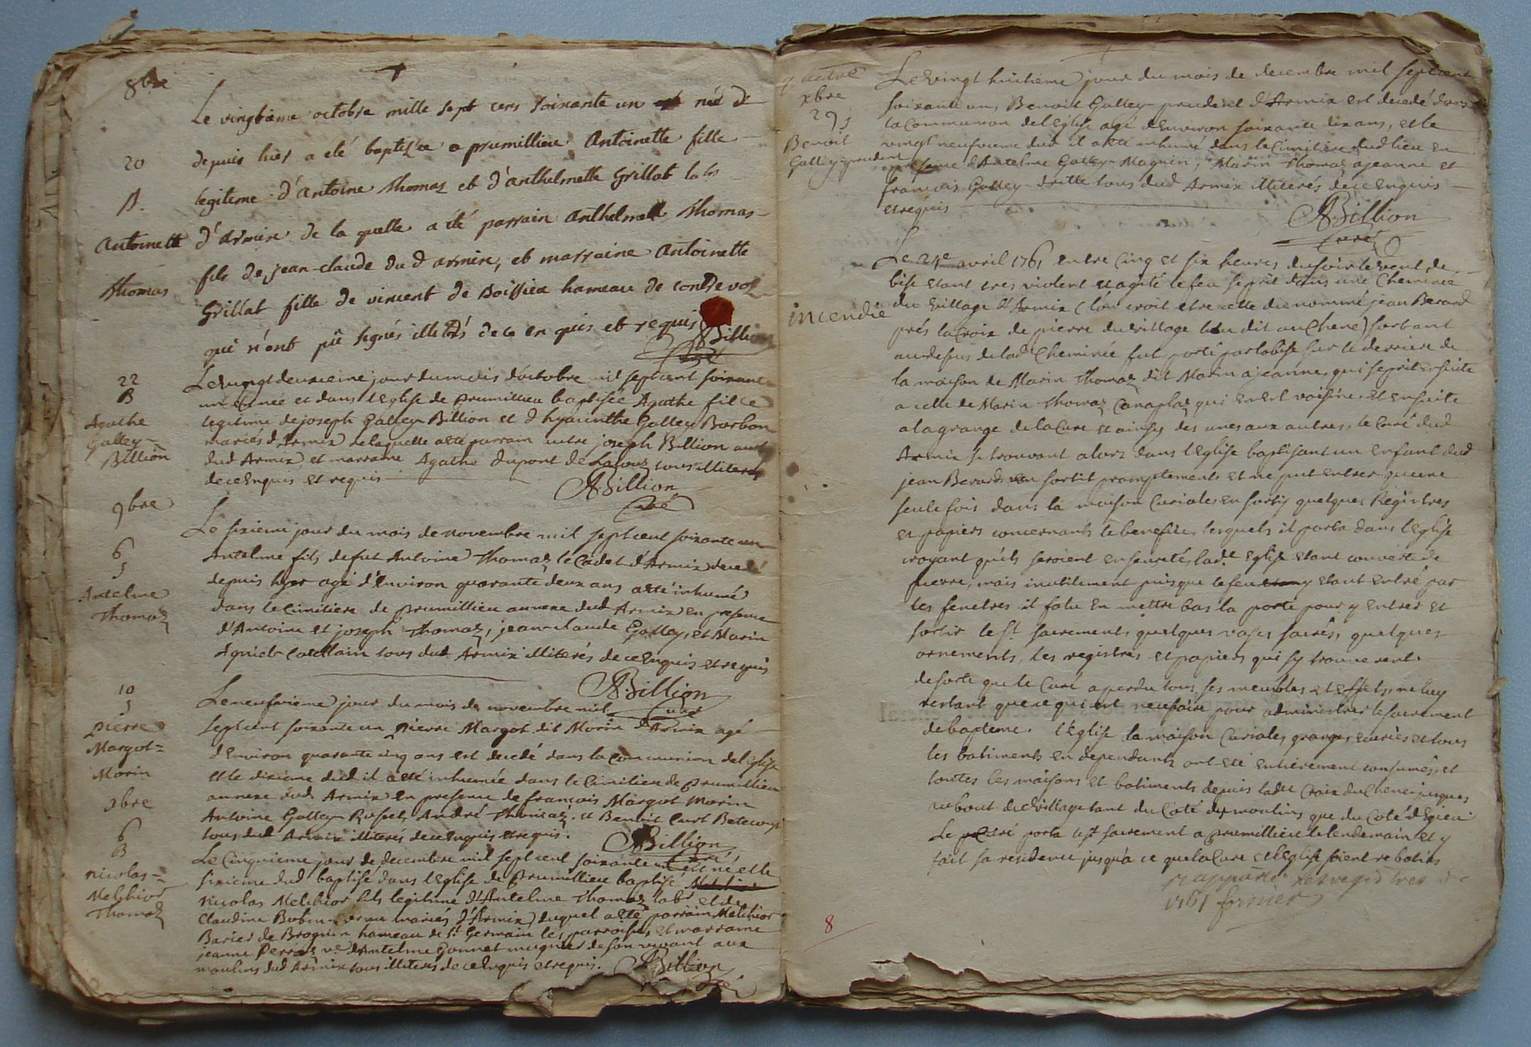 8bre
Le vingtième octobre mille sept cens soixante un née de
20
depuis hier a été baptisée a prumillieu Antoinette fille
B.
legitime d'Antoine Thomas et d'anthelmette Grillat labs
Antoinette
d'armix de la quelle a été parrain anthelme Thomas
Thomas
fils de jean-claude du d armix, et marraine Antoinette
Grillat fille de vincent de Boissieu hameau de contrevoz
qui n'ont pu signés illetrés de ce enquis et requis
ABillion
Curé
22
B
Agathe
Galley
Billion
Le vingt deuxieme jour du mois d'octobre mil sept cent soixante
un est née et dans l'Eglise de Prumillieu baptisée Agathe fille
legitime de joseph Galley Billion et d hyacinthe Galley Barbon
mariés d'Armix de laquelle a été parrain autre joseph Billion
dud Armix et marraine Agathe dupont de tous illiteres
de ce Enquis et requis
ABillion
Curé
9bre
6
S
Antelme
Thomaz
Le sixieme jour du mois de novembre mil sept cent soixante un
Antelme fils de fut Antoine Thomaz le Cadet d'Armix decedé
depuis hyer agé d'Environ quarante deux ans a été inhumé
dans le Cimitiere de Prumillieu annexe dud Armix en presence
d'Antoine et joseph Thomaz, jean claude Galley, et Marin
tous dud Armix illiterés de ce Enquis et requis
ABillion
Curé
10
S
pierre
Margot
Morin
Le neufvieme jour du mois de novembre mil
sept cent soixante un Pierre Margot dit Morin d'Armix agé
d'Environ quarante cinq ans est decedé dans la Communion de l'Eglise
et le dixieme dud il a été inhumé dans le Cimitiere de Prumillieu
annexe dud Armix en presence de françois Margot Morin
Antoine Galley Russet, André Thomaz, et Benoit
tous dud Armix illiterés de ce Enquis et requis.
ABillion
Curé
xbre
6
B
nicolas
Melchior
Thomaz
Le Cinquieme jour de decembre mil sept cent soixante un est né et le
sixieme dud baptisé dans l'Eglise de Prumillieu
nicolas Melchior fils legitime d'Antelme Thomaz labr et de
Claudine Bobin mariés d'Armix duquel a été parrain Melchior
de Brognin hameau de St Germain les parroisses et marraine
jeanne Perraz ve d'Antelme Gonnet meunier de son vivant aux
moulins dud Armix tous illiteres de ce Enquis et requis.
ABillion
Curé
xbre
29
S
Benoit
Galley prudent
Le vingt huitieme jour du mois de decembre mil sept cent
soixante un, Benoit Galley prudent d'Armix est decedé dans
la Communion de l'Eglise agé d'Environ soixante dix ans, et le
vingt neufvieme dud il a été inhumé dans le Cimitiere dud lieu en
presence d'Antelme Galley Magnin, Marin Thomaz ajeanne et
françois Galley tous dud Armix illiterés de ce Enquis
et requis
ABillion
curé
incendie
Le avril 1761 entre Cinq et six heures du soir le vent de
bise etant tres violent et agité le feu se prit dans une Cheminée
du village d'Armix (l'on croit etre celle du nommé jean Berard
prés la Croix de pierre du village lieu dit au Chene) sortant
au dessus de lad Cheminée fut porté par la bise sur le derriere de
la maison de Marin Thomaz dit Marin ajeanne, qui se prit ensuite
a celle de Marin Thomaz Canaplaz qui en est voisine, et ensuite
a la grange de la Cure et ainsy des unes aux autres, le Curé dud
Armix se trouvant alors dans l'Eglise baptisant un Enfant dud
jean Berard en sortit promptement et ne put entrer qu'une
seule fois dans la maison Curiale, en sortit quelques Registres
et papiers concernants le benefice lesquels il porta dans l'Eglise
croyant qu'ils seroient en sureté lad Eglise etant couverte de
pierre, mais inutilement puisque le feu y etant entré par
les fenetres il falu en mettre bas la porte pour y entrer et
sortir le St sacrement, quelques vases sacrés, quelques
ornements, les registres et papiers qui s'y trouverent.
de sorte que le Curé a perdu tous ses meubles et effets, ne luy
restant que ce qui est necessaire pour administrer le sacrement
de bapteme. l'Eglise la maison Curiale, granges ecuries et tous
les batiments en dependants ont eté entierement consumés, et
toutes les maisons et batiments depuis lade Croix du Chene jusques
au bout du village tant du Coté des moulins que du Coté d'Egieu
Le Curé porta le St sacrement a Prumillieu le lendemain et y
fait sa residence jusqu'a ce que la Cure et l'Eglise soient rebaties
1761
8